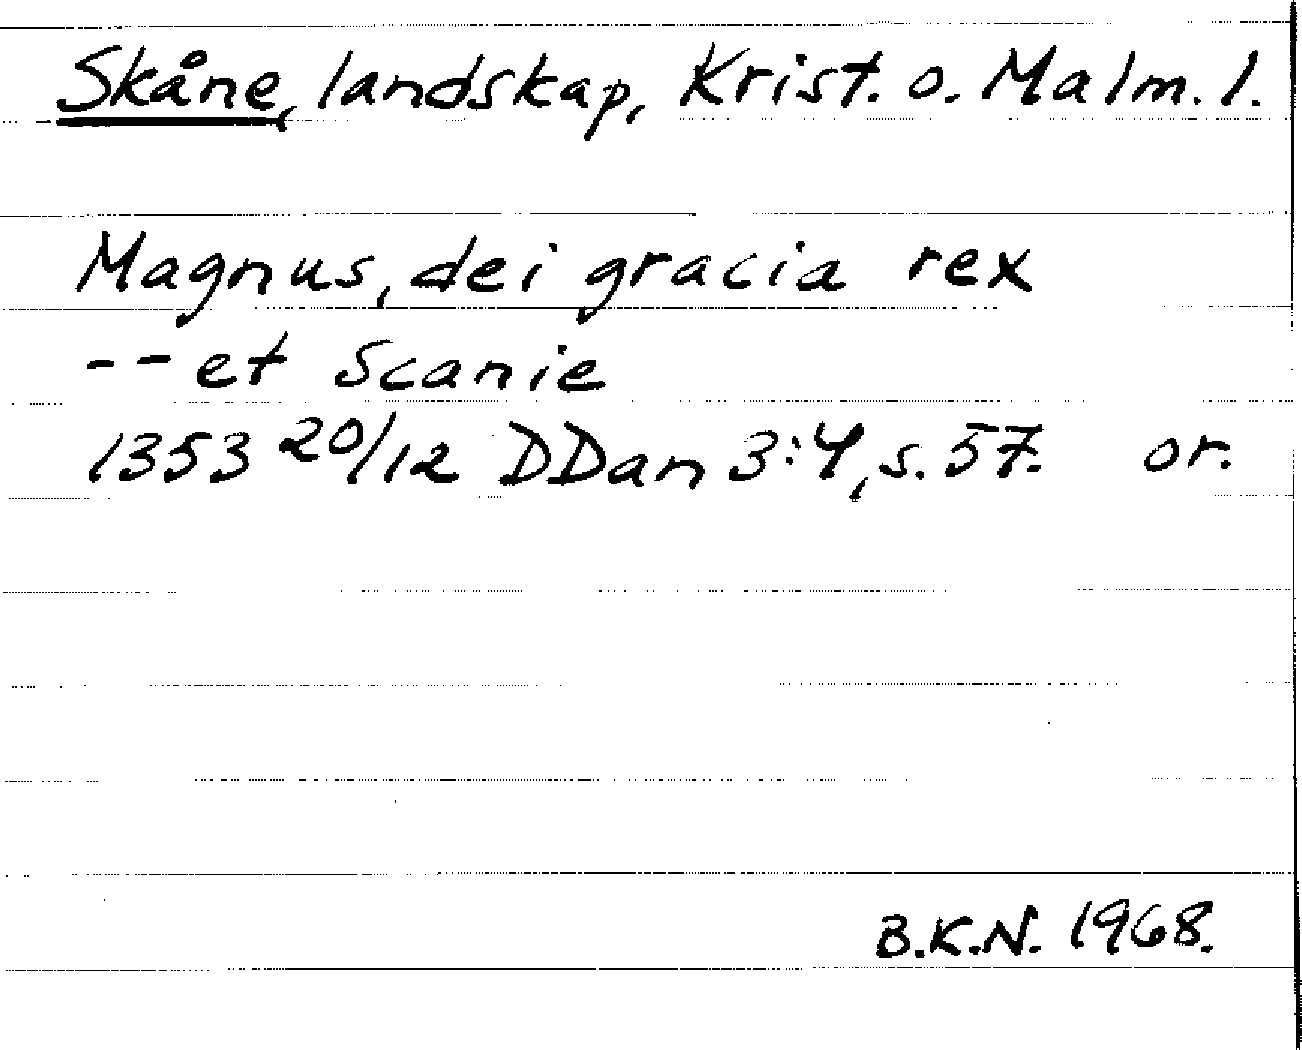 Skåne, landskap, Krist. o. Malm. l.
Magnus, dei gracia rex
-- et Scanie
1353 20/12 DDan 3:4, s. 57. or.
B.K.N. 1968.